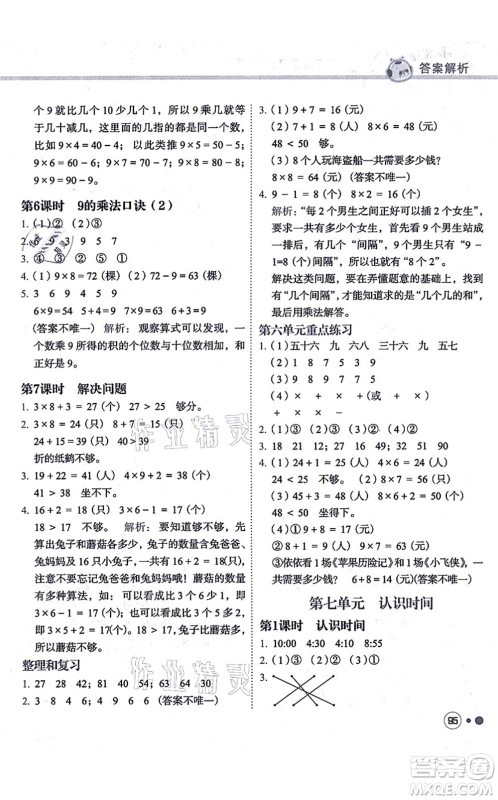 答案解析
个 9 就比几个 10 少几个 1，也就是 9 乘几就等
于几十减几，这里面的几都是同一个数，
即 9×4=40-4；以此类推 9×5=50-5，
9×6=60-6，9×7=70-7，9×9=
90-9。
第6课时　9的乘法口诀（2）
1.（1）②　（2）③
2. 6　9　3　9　5　7
3. ④　③　②　⑤　①
4.（1）9×8=72（棵）（2）72-9=63（棵）
5. 3　4　6　9　8　9
6×9=54　5+4=9　7×9=63　6+3=9
（答案不唯一）　解析：观察算式可以发现，一
个数乘 9 所得积的个位数与十位数相加的和
正好是 9。
第7课时　解决问题
1. 3×8+3=27（个）　27 > 25　够分。
2. 4×6=24（只）　8+7=15（只）
24+15=39（只）　39 < 40
折的纸鹤不够。
3. 19+22=41（人）　4×9+2=38（人）
41 > 38　坐不下。
4. 16+2=18（只）　3×6-1=17（个）
18 > 17　不够。　解析：要知道够不够，要先
算兔子和蘑菇各多少，兔子的数量和蘑菇的数
量都有多余信息，兔子的数量含有兔爸爸、
兔妈妈与兔宝宝，而且兔爸爸和兔妈妈是2只，
注意不要忘记兔爸爸和兔妈妈。蘑菇的数量
有多种算法，如：可以是少 1 个的算法，即
3×6-1=17（个）；也可以是多 2 个的算法，即
3×5+2=17（个）。所以兔子的数量多，蘑菇
的数量少，蘑菇不够。
整理和复习
1. 27　28　42；4　81　40；63　21　30
2. 4　9　6　6；4　9　9　4（答案不唯一）
3.（1）9+7=16（元）
（2）8-1=7（人）　8×6=48（元）
48 < 50　够。
（3）8 个人玩海盗船一共需要多少钱？
8×8=64（元）（答案不唯一）
4. 9-1=8（个）　8×2=16（个）
解析：“每 2 个男生之间都站 2 个女生”，
要求一共需要多少个女生，就要先求 9 个男生
有几个“间隔”，9 个男生的“间隔”是“9-
1=8（个）间隔”，也就是“8 个 2”。
解决这类问题，要在弄懂题意的基础上，找到
有“几个间隔”，与每个间隔里有几个女生，
最后用乘法解答。
第六单元重点练习
1. 五十六　九　八　三十六　九　五七
2.（1）③　（2）③　（3）②　（4）②
×　+　-　×　×　+
3. 18　21　12　48　32　51　90
4.（1）4×6=24（元）
24 < 25　够。
（2）6×8=48（个）
48 < 50　坐得下。
5.（1）8+9=17（元）
（2）8-3=5（元）
（3）依依看 1 场《苹果历险记》和 1 场《小飞侠》，
一共需要多少钱？　6+8=14（元）（答案不唯一）
第七单元　认识时间
第1课时　认识时间
1. 10:00　4:30　4:10　8:55
2.（1）②　（2）③　（3）④　（4）①
3.
95
作业精灵
作业精灵
答案圈
MXQE.COM